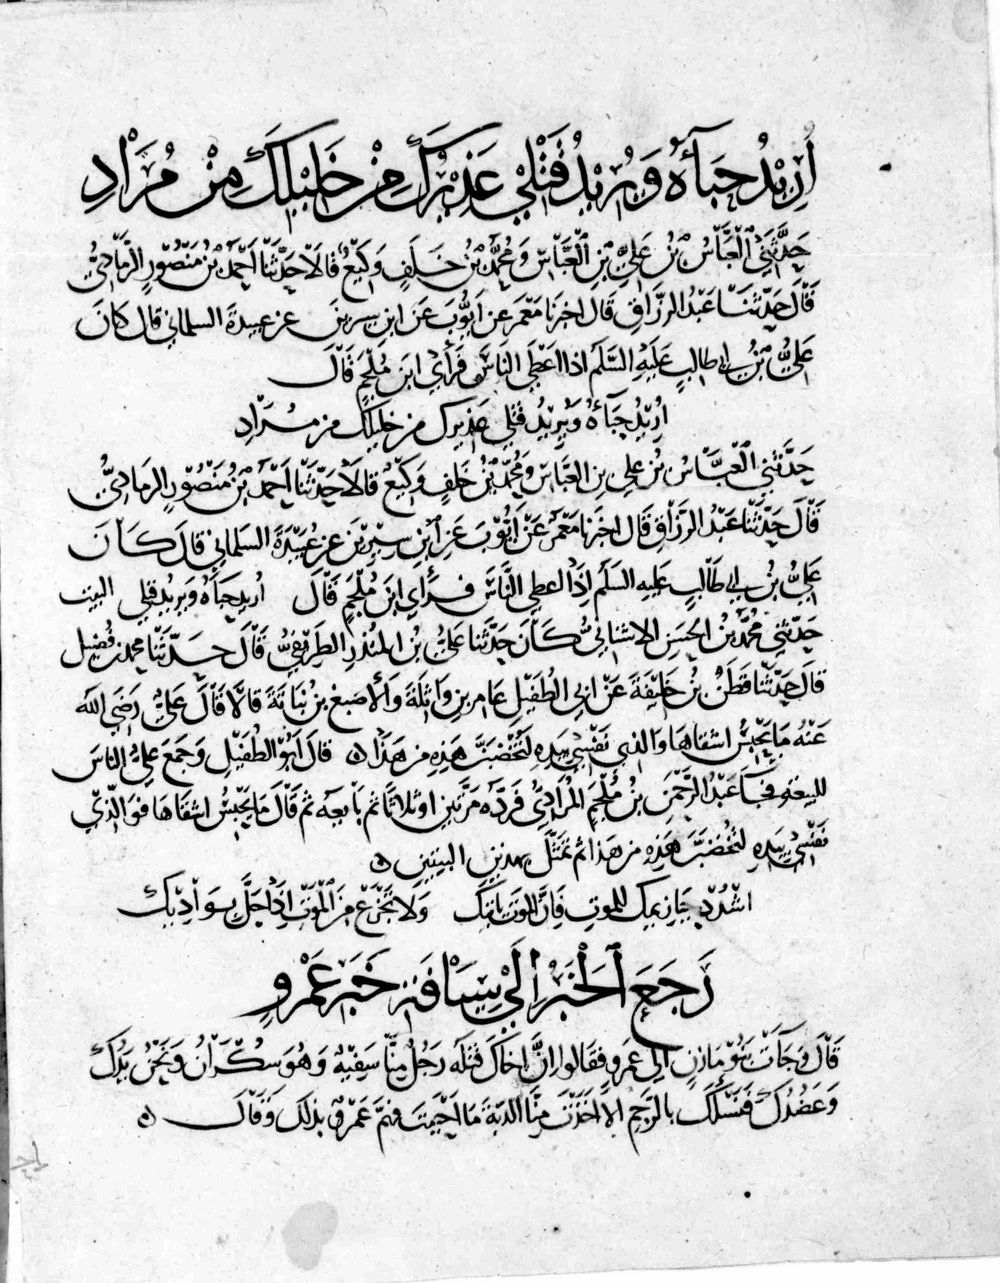 أُرِيْدُ حِبَآءَهُ وَيُرِيْدُ قَتْلِي عَذِيْرَكَ مِنْ خَلِيْلِكَ مِنْ مُرَادِ
حَدَّثَنِي الْعَبَّاسُ بْنُ عَلِيِّ بْنِ الْعَبَّاسِ وَمُحَمَّدُ بْنُ خَلَفٍ وَكِيْعٌ قَالَا حَدَّثَنَا أَحْمَدُ بْنُ مَنْصُوْرٍ الرَّمَادِيُّ
قَالَ حَدَّثَنَا عَبْدُ الرَّزَّاقِ قَالَ اخبرنا مَعْمَر عن أَيُّوْبَ عَنِ ابنِ سِيرِينَ عن عبيدَةَ السلماني قال كَانَ
عَلِيُّ بْنُ ابي طالبٍ عَلَيْهِ السَّلَم اذا اعْطَى النَّاسَ فَرَأَى ابنَ مُلْجَمٍ قَالَ
أُرِيْدُ حِبَآءَهُ وَيُرِيْدُ قَتْلِي عَذِيرَكَ من خليلك من مُرَادِ
حَدَّثَنِي الْعَبَّاسُ بْنُ علي بنِ العَبَّاسِ وَمُحَمَّدُ بْنُ خَلَفٍ وَكِيْعٌ قَالَا حَدَّثَنَا أَحْمَدُ بْنُ مَنْصُوْرٍ الرمَادِيُّ
قَالَ حَدَّثَنَا عَبْدُ الرَّزَّاقِ قَالَ اخبَرنا مَعْمَرٌ عَنْ أَيُّوْبَ عَنِ ابْنِ سِيْرِيْنَ عن عَبِيْدَةَ السَلمانيِ قَالَ كَانَ
عَلِيُّ بنُ ابي طَالبٍ عليه السلَم إِذَا اعطى النَّاسَ فرَأَى ابنَ مُلْجَمٍ قَالَ أُريد حِبَآءَهُ وَيريد قتلي البيت
حَدَّثني مُحَمَّدُ بْنُ الحسَنِ الاشنانيُّ كَانَ حَدَّثنا عَلِيُّ بن المُنْذِرِ الطَرِيْقِيُّ قَالَ حَدَّثَنَا محمد بن فُضَيل
قالَ حَدَّثَنَا فَطَنُ بْنُ خَلِيْفَةَ عَنْ ابي الطُفَيْلِ عَامِرِ بنِ وَاثِلَةَ وَالأَصْبَغِ بنِ نُبَاتَةَ قالَا قَالَ عَلِيٌّ رَضِيَ الله
عَنْهُ مَا يَحْبِسُ اشقاهَا وَالذي نَفْسي بِيَدِهِ لَتُخْضَبَنَّ هَذِهِ من هَذَا ۞ قالَ ابُو الطُفَيْلِ وَجَمَعَ عليٌّ الناسَ
للبيعةِ فجآءَ عَبْدُ الرَّحْمَنِ بنُ مُلْجَمٍ المُرَادِيُّ فَرَدَّه مرَّتَين او ثلاثًا ثم بايعَهُ ثم قَالَ مَا يَحْبِسُ اشقاهَا فوَالَّذِيْ
نَفْسِي بِيَدِهِ لَتُخْضَبَنَّ هَذِهِ من هَذا ثم تَمَثَّلَ بهذينِ البيتينِ ۞
اشْدُدْ حَيَازِيمَكَ للموتِ فَانَّ الموتَ يَاتيكَ وَلَا تَجْزَعْ مِنَ الْمَوْتِ إِذَا حَلَّ بِوَادِيْكَ
رَجَعَ الْخَبَرُ إِلَى سِيَاقَةِ خَبَرِ عَمْرٍو
قَالَ وَجَآءَتْ بَنُوْ مَازِنٍ الى عمرو فقالوا انَّ اخاكَ قَتَلَهُ رَجُلٌ مِنَّا سَفِيْهٌ وَهُوَ سَكْرَانُ وَنَحْنُ يَدُكَ
وَعَضُدُكَ فَنَسْأَلُكَ بالرَّحِمِ الَّا اخَذْتَ مِنَّا الدِّيَةَ مَا احْبَبْتَ فَهَمَّ عَمْرٌو بذلِكَ وَقَالَ ۞